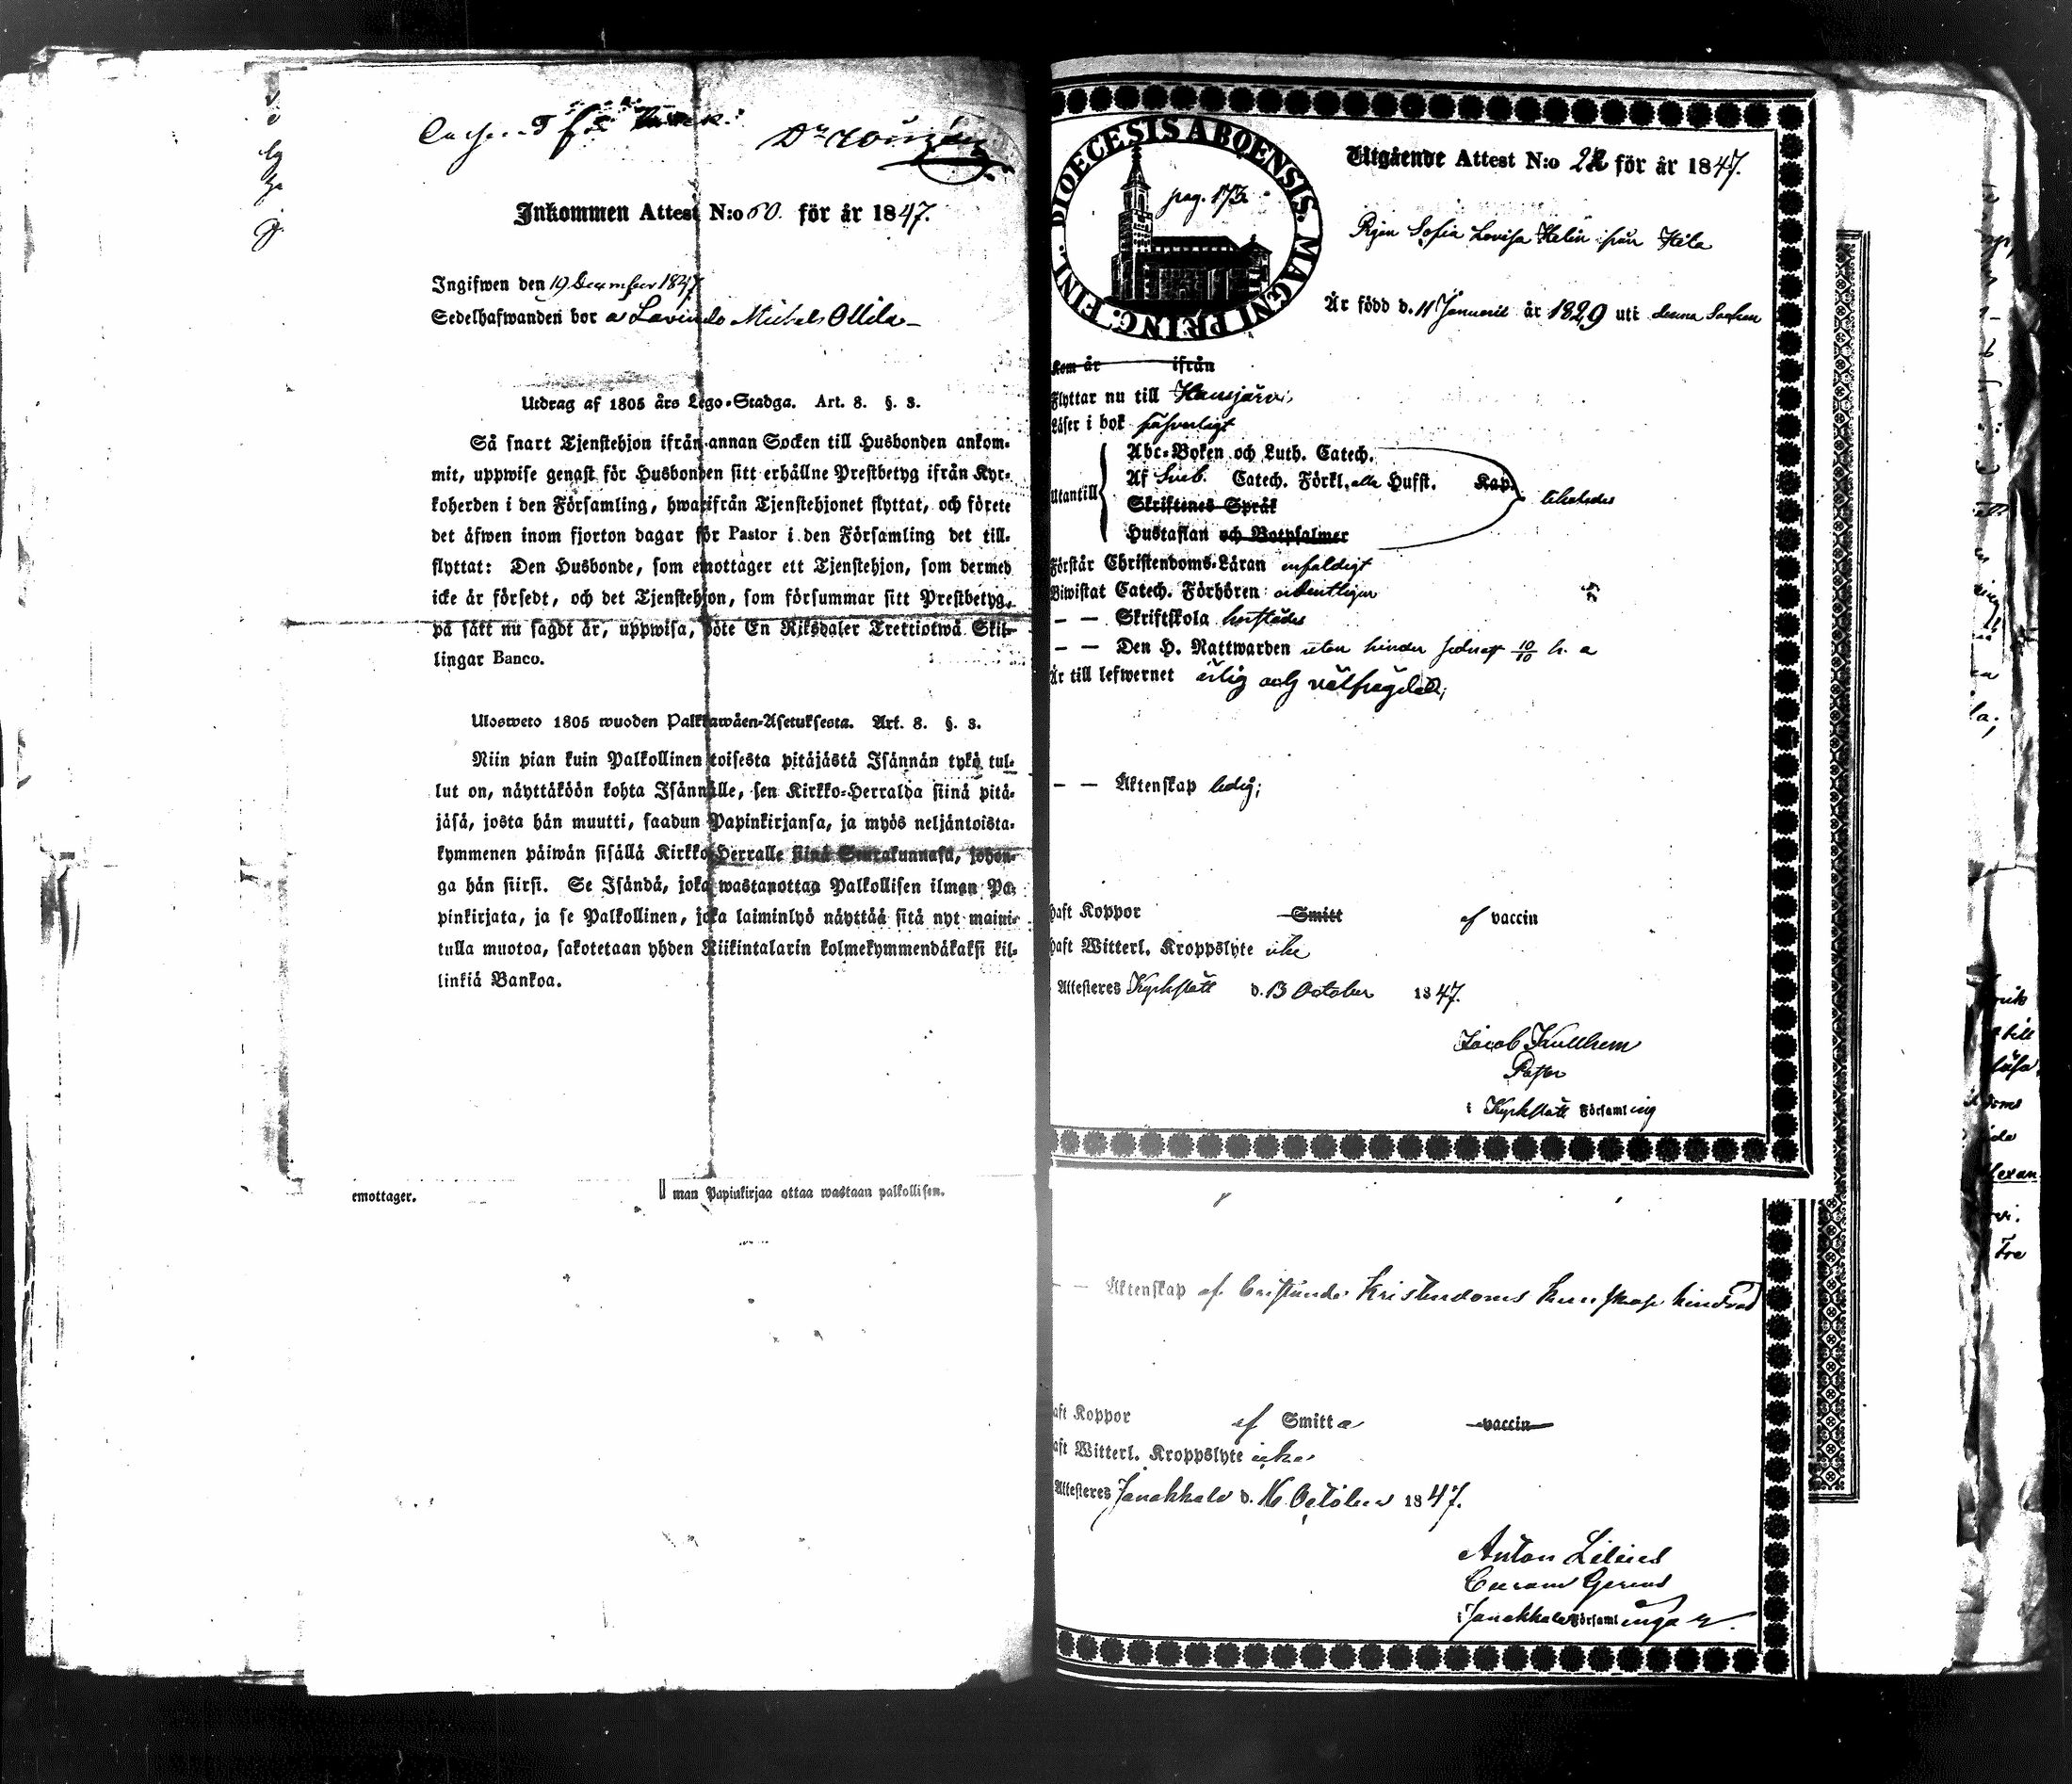 Inkommen Attest N:o 60. för år 1847.
Ingifwen den 19 December 1847
Sedelhafwanden bor å Lavinto Michels Ollila
Utdrag af 1805 års Lego-Stadga. Art. 8. §. 3.
Så snart Tjenstehjon ifrån annan Socken till Husbonden ankom-
mit, uppwise genast för Husbonden sitt erhållne Prestbetyg ifrån Kyr-
koherden i den Församling, hwarifrån Tjenstehjonet flyttat, och förete
det äfwen inom fjorton dagar för Pastor i den Församling det till-
flyttat: Den Husbonde, som emottager ett Tjenstehjon, som dermed
icke är försedt, och det Tjenstehjon, som försummar sitt Prestbetyg,
på sätt nu sagdt är, uppwisa, böte En Riksdaler Trettiotwå Skil-
lingar Banco.
Ulosweto 1805 wuoden Palkkawäen-Asetuksesta. Art. 8. §. 3.
Niin pian kuin Palkollinen toisesta pitäjästä Isännän tykö tul-
lut on, näyttäköön kohta Isännälle, sen Kirkko-Herralda siinä pitä-
jäsä, josta hän muutti, saadun Papinkirjansa, ja myös neljäntoista-
kymmenen päiwän sisällä Kirkko-Herralle siinä Seurakunnasa, johon-
ga hän siirsi. Se Isändä, joka wastanottaa Palkollisen ilman Pa-
pinkirjata, ja se Palkollinen, joka laiminlyö näyttää sitä nyt maini-
tulla muotoa, sakotetaan yhden Riikintalarin kolmekymmendäkaksi kil-
linkiä Bankoa.
emottager. man Papinkirjaa ottaa wastaan palkollisen.
DIOECESIS ABOENSIS. MAGNI PRINC. FINL.
pag. 173.
Utgående Attest N:o 22 för år 1847.
Pigan Sofia Lovisa Helin från Hila
Är född d. 11 Januarii år 1829 uti denna Socken
Kom år ifrån
Flyttar nu till Hausjärvi
Läser i bok försvarligt
Utantill
Abc-Boken och Luth. Catech.
Af Sveb. Catech. Förkl. alla Hufst. Kap.
Skriftenes Språk
Hustaflan och Botpsalmer
Förstår Christendoms-Läran enfaldigt
Biwistat Catech. Förhören ordentligen
— — Skriftskola
— — Den H. Nattwarden utan hinder senast 10/10 h. a
Är till lefwernet ärlig och välfräjdad;
— — Äktenskap ledig;
haft Koppor Smitt af vaccin
haft Witterl. Kroppslyte icke
Attesteres Kyrkslätt d. 13 October 1847.
Jacob Kullhem
Pastor
i Kyrkslätt Församling
— — Äktenskap af bristande Kristendoms kunskap hindrad
haft Koppor af Smitta vaccin
haft Witterl. Kroppslyte icke
Attesteres Janakkala d. 16 October 1847.
Anton Lilius
Curam Gerens
i Janakkala Församlingar